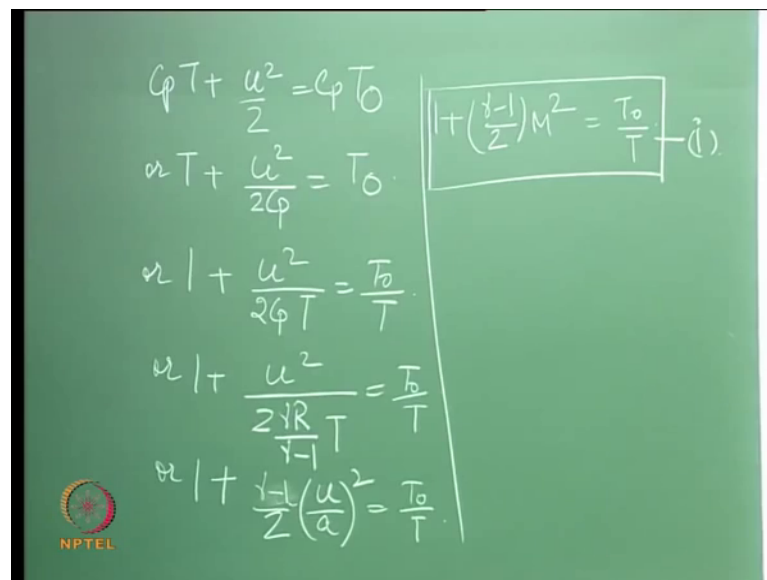 CpT + u²/2 = CpT₀
or T + u²/2Cp = T₀.
or 1 + u²/2CpT = T₀/T.
or 1 + u²/(2 γR/γ-1 T) = T₀/T
or 1 + γ-1/2 (u/a)² = T₀/T.
1 + (γ-1/2) M² = T₀/T. — (i)
NPTEL